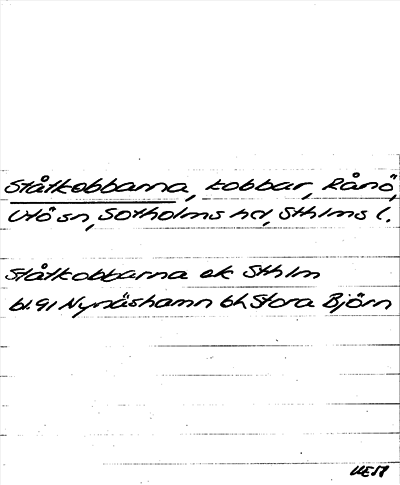 Ståtkobbarna, kobbar, Rånö,
Utö sn, Sotholms hd, Sthlms l.
Ståtkobbarna ek Sthlm
bl. 91 Nynäshamn bl. Stora Björn